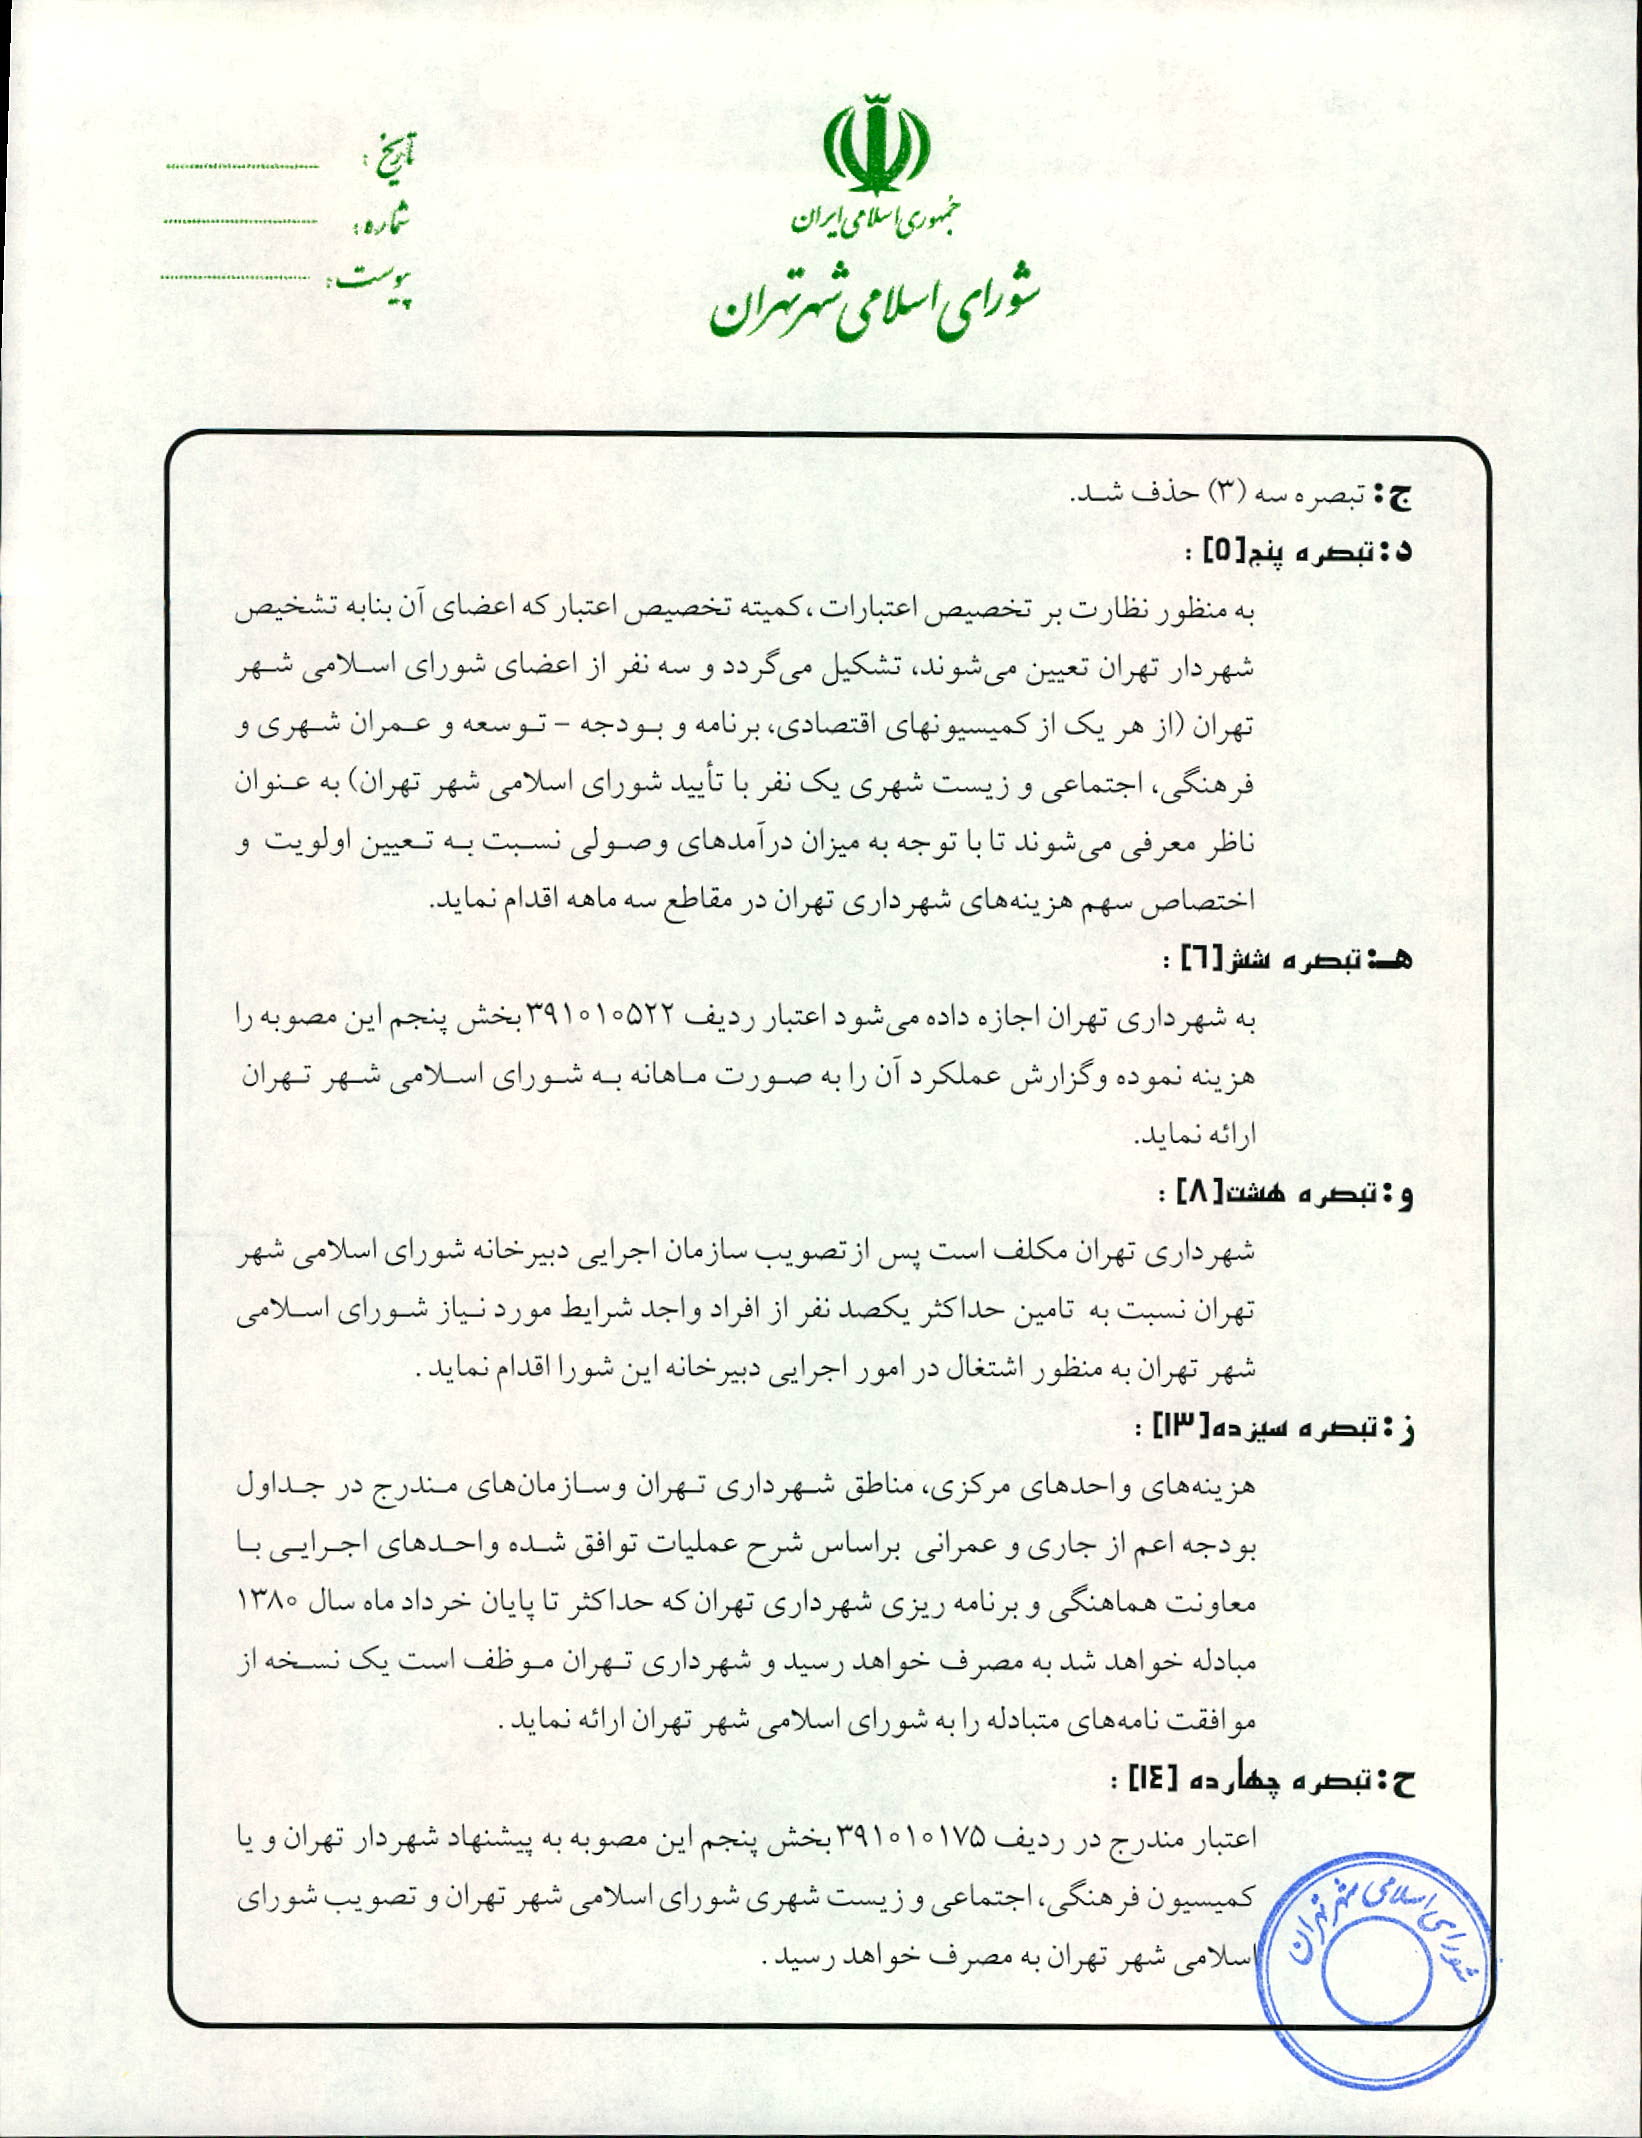 جمهوری اسلامی ایران
شورای اسلامی شهر تهران
تاریخ :
شماره :
پیوست :
ج: تبصره سه (۳) حذف شد.
د: تبصره پنج[۵] :
به منظور نظارت بر تخصیص اعتبارات، کمیته تخصیص اعتبار که اعضای آن بنابه تشخیص
شهردار تهران تعیین می‌شوند، تشکیل می‌گردد و سه نفر از اعضای شورای اسلامی شهر
تهران (از هر یک از کمیسیونهای اقتصادی، برنامه و بودجه – توسعه و عمران شهری و
فرهنگی، اجتماعی و زیست شهری یک نفر با تأیید شورای اسلامی شهر تهران) به عنوان
ناظر معرفی می‌شوند تا با توجه به میزان درآمدهای وصولی نسبت به تعیین اولویت و
اختصاص سهم هزینه‌های شهرداری تهران در مقاطع سه ماهه اقدام نماید.
هـ: تبصره شش[۶] :
به شهرداری تهران اجازه داده می‌شود اعتبار ردیف ۳۹۱۰۱۰۵۲۲ بخش پنجم این مصوبه را
هزینه نموده وگزارش عملکرد آن را به صورت ماهانه به شورای اسلامی شهر تهران
ارائه نماید.
و: تبصره هشت[۸] :
شهرداری تهران مکلف است پس از تصویب سازمان اجرایی دبیرخانه شورای اسلامی شهر
تهران نسبت به تامین حداکثر یکصد نفر از افراد واجد شرایط مورد نیاز شورای اسلامی
شهر تهران به منظور اشتغال در امور اجرایی دبیرخانه این شورا اقدام نماید .
ز: تبصره سیزده[۱۳] :
هزینه‌های واحدهای مرکزی، مناطق شهرداری تهران وسازمان‌های مندرج در جداول
بودجه اعم از جاری و عمرانی براساس شرح عملیات توافق شده واحدهای اجرایی با
معاونت هماهنگی و برنامه ریزی شهرداری تهران که حداکثر تا پایان خرداد ماه سال ۱۳۸۰
مبادله خواهد شد به مصرف خواهد رسید و شهرداری تهران موظف است یک نسخه از
موافقت نامه‌های متبادله را به شورای اسلامی شهر تهران ارائه نماید .
ح: تبصره چهارده [۱۴] :
اعتبار مندرج در ردیف ۳۹۱۰۱۰۱۷۵ بخش پنجم این مصوبه به پیشنهاد شهردار تهران و یا
کمیسیون فرهنگی، اجتماعی و زیست شهری شورای اسلامی شهر تهران و تصویب شورای
اسلامی شهر تهران به مصرف خواهد رسید .
شورای اسلامی شهر تهران